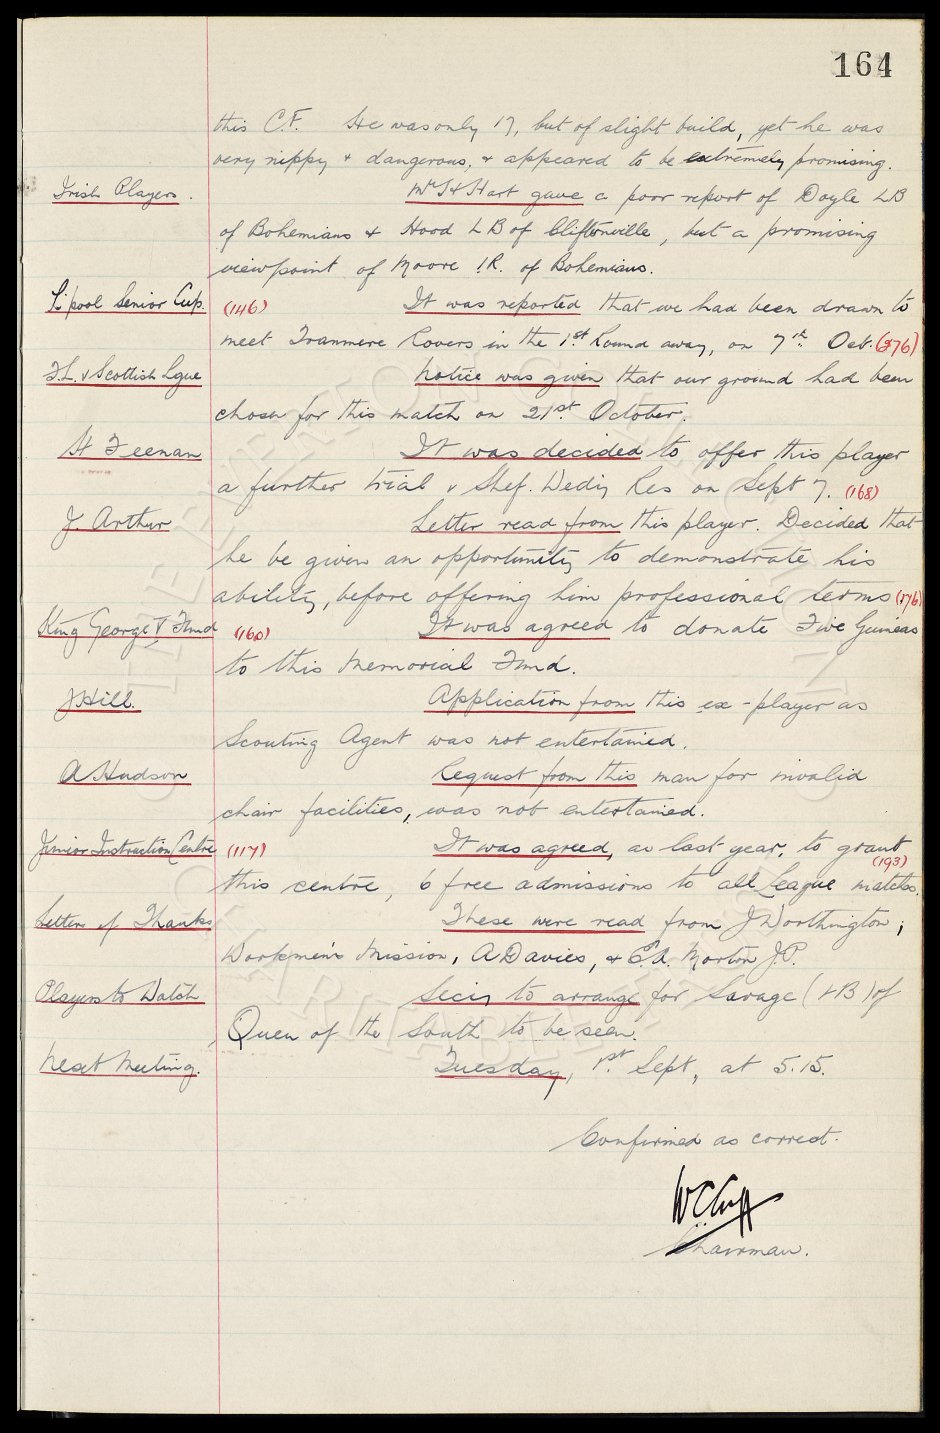 164
this C.F. He was only 17, but of slight build, yet he was
very nippy & dangerous, & appeared to be extremely promising.
Irish Players. Mr H Hart gave a poor report of Doyle LB
of Bohemians & Hood LB of Cliftonville, but a promising
viewpoint of Moore IR. of Bohemians.
L'pool Senior Cup. (146) It was reported that we had been drawn to
meet Tranmere Rovers in the 1st Round away, on 7th Oct. (276)
F.L. v Scottish Lgue Notice was given that our ground had been
chosen for this match on 21st October.
H Feenan It was decided to offer this player
a further trial v Shef. Wedy Res on Sept 7. (168)
J. Arthur Letter read from this player. Decided that
he be given an opportunity to demonstrate his
ability, before offering him professional terms (176)
King George V Fund (160) It was agreed to donate Five Guineas
to this Memorial Fund.
J Hill. Application from this ex-player as
Scouting Agent was not entertained.
A Hudson Request from this man for invalid
chair facilities, was not entertained.
Junior Instruction Centre (117) It was agreed, as last year, to grant
this centre, 6 free admissions to all League matches. (193)
Letters of Thanks These were read from J Worthington;
Workmen's Mission, A Davies, & E.A. Morton J.P.
Players to Watch Secy to arrange for Savage (LB) of
Queen of the South to be seen.
Next Meeting. Tuesday, 1st. Sept, at 5.15.
Confirmed as correct.
W C Cuff
Chairman.
THE EVERTON COLLECTION
CHARITABLE TRUST